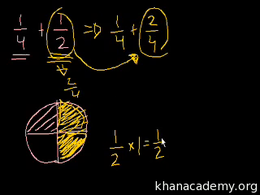 1/4 + 1/2 ⇒ 1/4 + 2/4
2/4
1/2 × 1 = 1/2
khanacademy.org